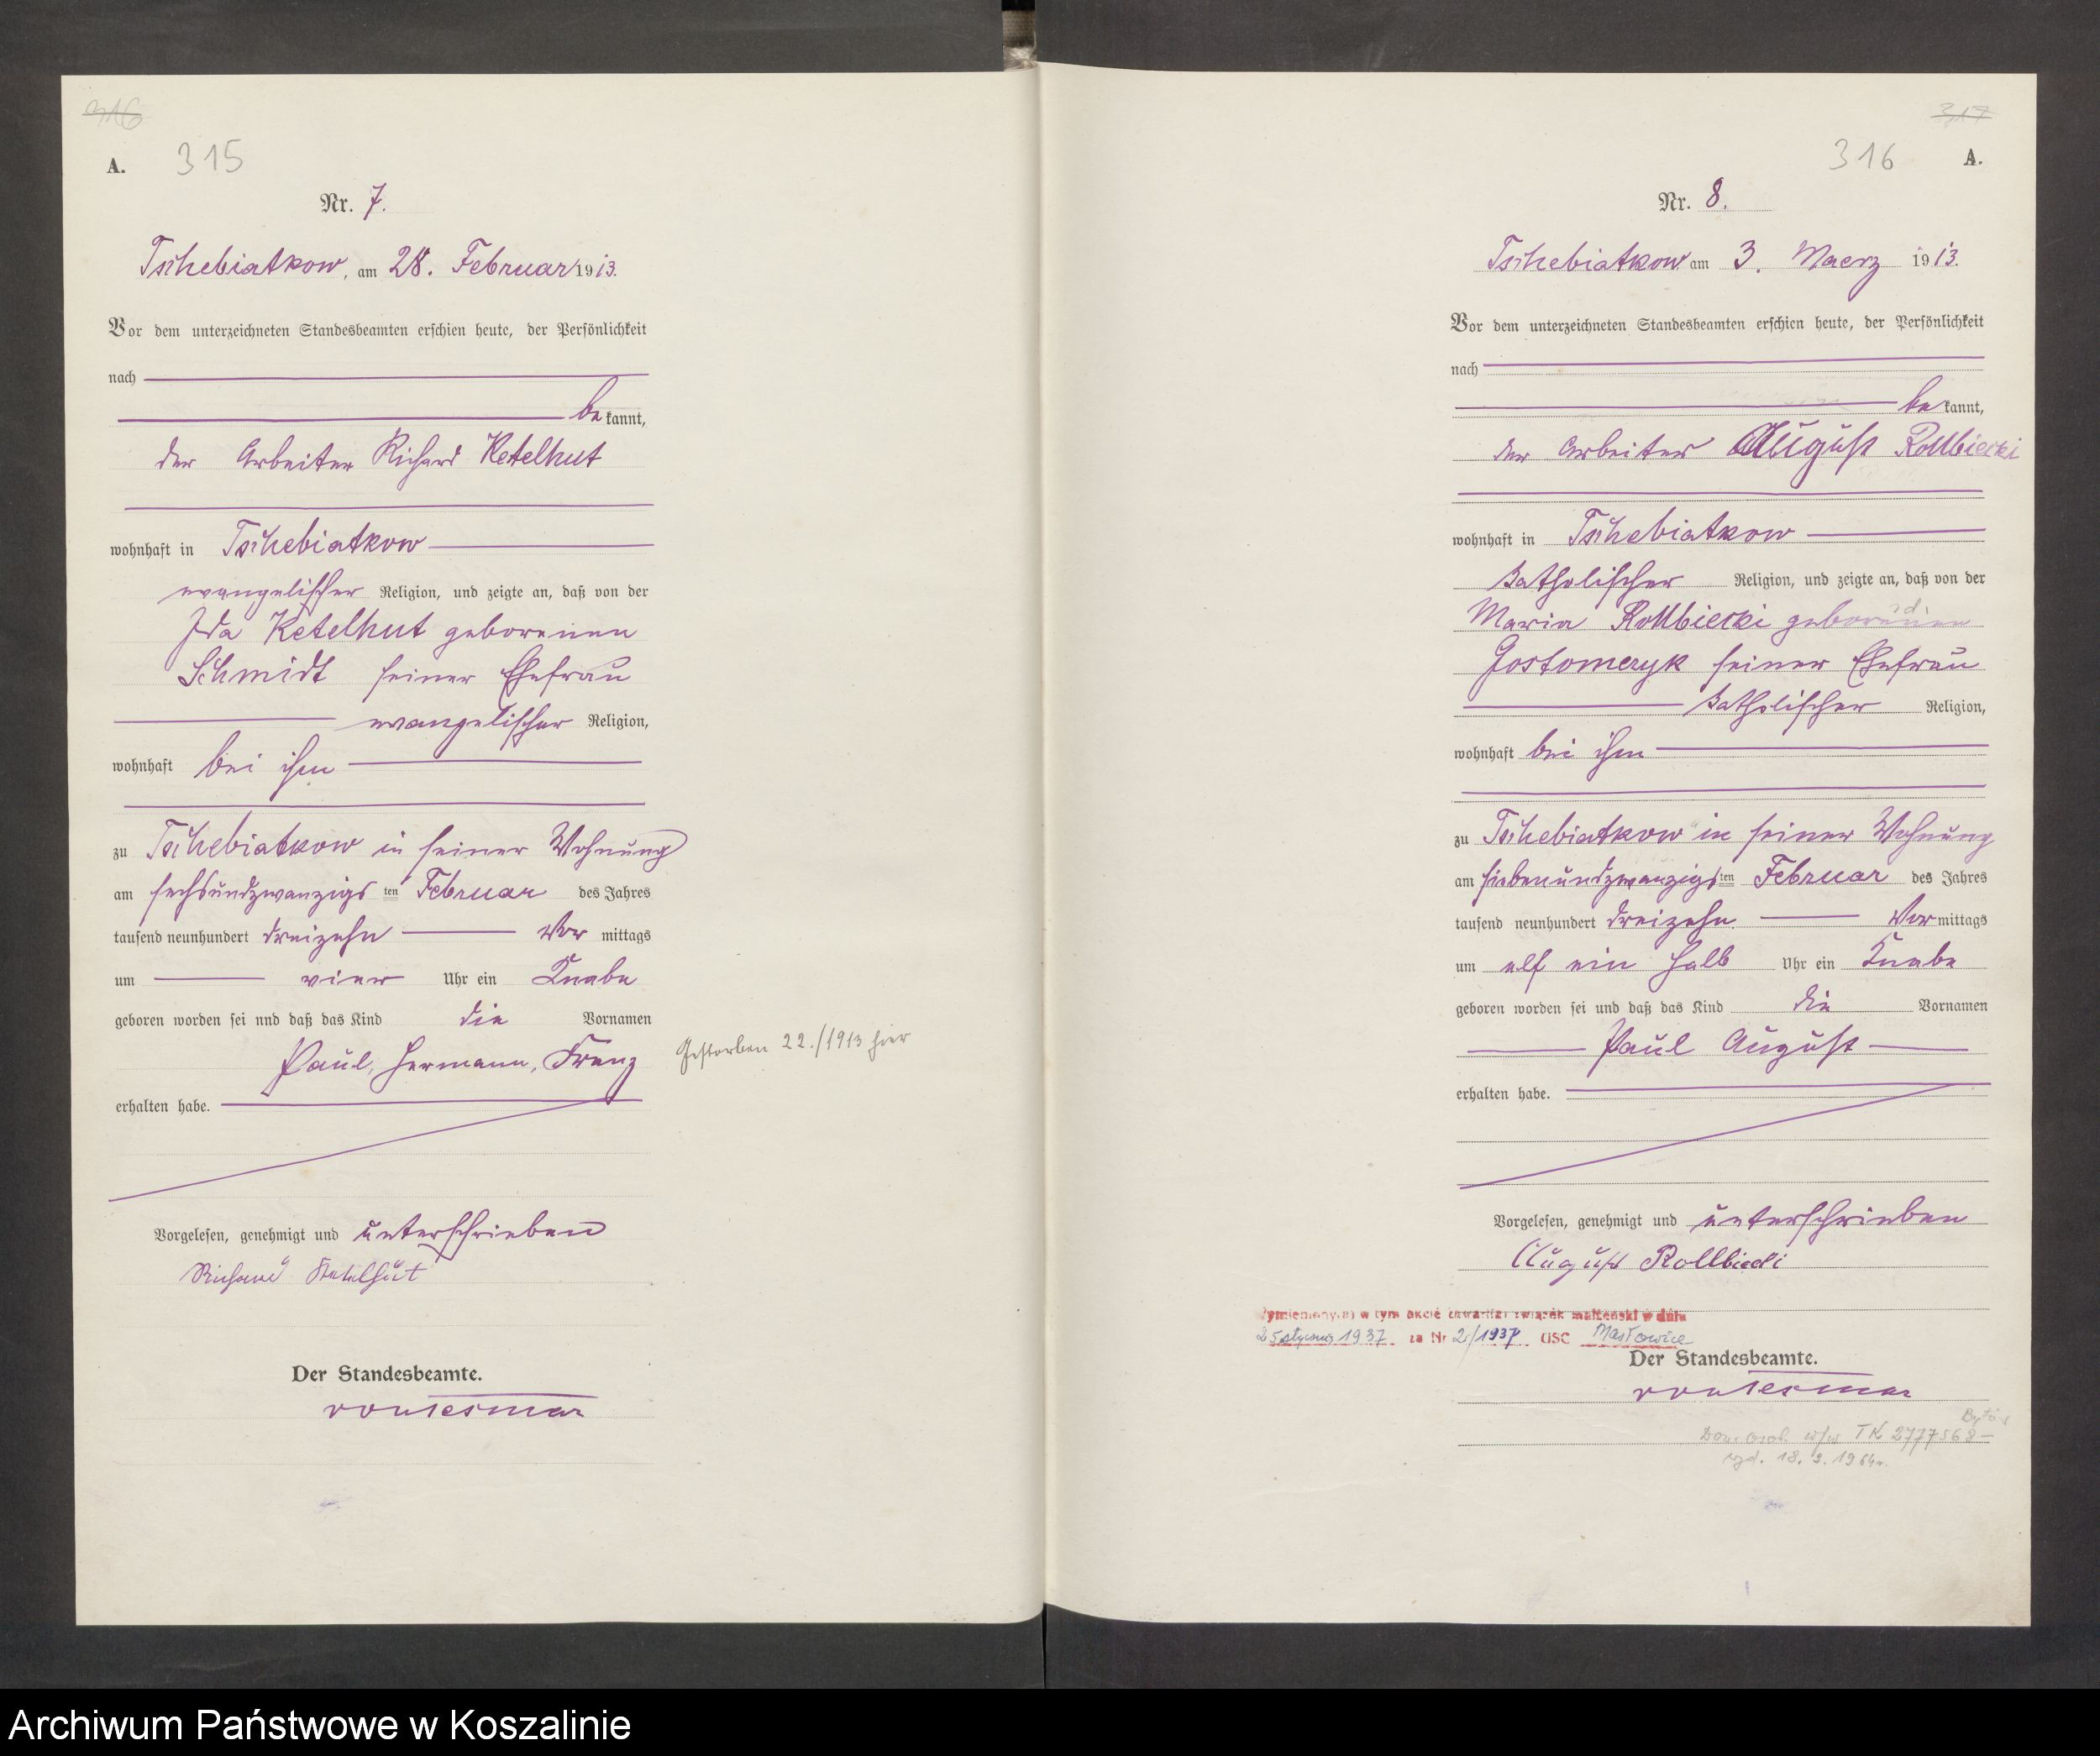 316
A. 315
Nr. 7.
Tschebiatkow, am 28. Februar 1913.
Vor dem unterzeichneten Standesbeamten erschien heute, der Persönlichkeit
nach
be kannt,
der Arbeiter Richard Ketelhut
wohnhaft in Tschebiatkow
evangelischer Religion, und zeigte an, daß von der
Ida Ketelhut geborenen
Schmidt seiner Ehefrau
evangelischer Religion,
wohnhaft bei ihm
zu Tschebiatkow in seiner Wohnung
am sechsundzwanzigs ten Februar des Jahres
tausend neunhundert dreizehn Vor mittags
um vier Uhr ein Knabe
geboren worden sei nnd daß das Kind die Vornamen
Paul, Hermann, Franz
Gestorben 22./1913 hier
erhalten habe.
Vorgelesen, genehmigt und unterschrieben
Richard Ketelhut
Der Standesbeamte.
317
316 A.
Nr. 8.
Tschebiatkow am 3. Maerz 1913.
Vor dem unterzeichneten Standesbeamten erschien heute, der Persönlichkeit
nach
be kannt,
der Arbeiter August Rollbiecki
wohnhaft in Tschebiatkow
katholischer Religion, und zeigte an, daß von der
Maria Rollbiecki geborenen
Gostomczyk seiner Ehefrau
katholischer Religion,
wohnhaft bei ihm
zu Tschebiatkow in seiner Wohnung
am siebenundzwanzigs ten Februar des Jahres
tausend neunhundert dreizehn Vor mittags
um elf ein halb Uhr ein Knabe
geboren worden sei und daß das Kind die Vornamen
Paul August
erhalten habe.
Vorgelesen, genehmigt und unterschrieben
August Rollbiecki
w tym akcie zawarł(a) związek małżeński w dniu
25 stycznia 1937 za Nr 2/1937 USC Masłowice
Der Standesbeamte.
Bytów
Dow. osob. w/w TK 2777568
wyd. 18. 3. 1964r.
Archiwum Państwowe w Koszalinie